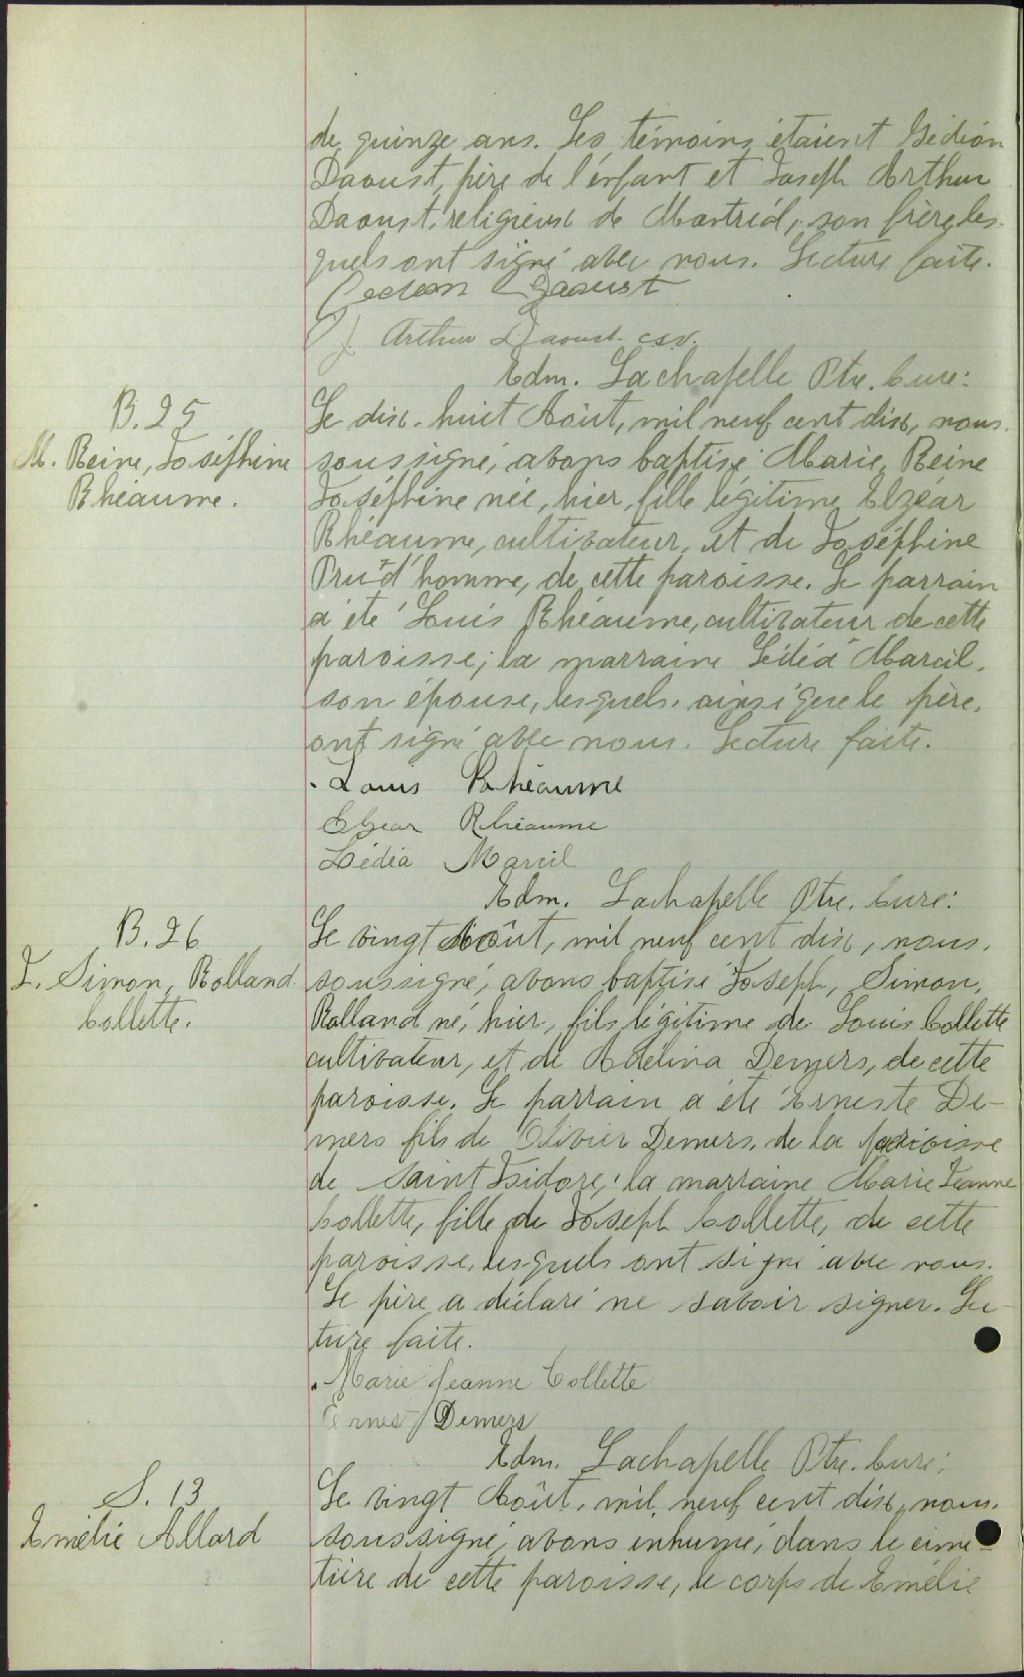 de quinze ans. Les témoins étaient Gédéon
Daoust, père de l'enfant et Joseph Arthur
Daoust, religieux de Montréal, son frère, les-
quels ont signé avec nous. Lecture faite.
Gedeon Daoust
J. Arthur Daoust. csv.
Edm. Lachapelle Ptre. Curé:
B. 25
M. Reine, Joséphine
Rhéaume.
Le dix-huit Août, mil neuf cent dix, nous,
soussigné, avons baptisé Marie, Reine
Joséphine née, hier, fille légitime Elzéar
Rhéaume, cultivateur, et de Joséphine
Prud'homme, de cette paroisse. Le parrain
a été Louis Rhéaume, cultivateur de cette
paroisse; la marraine Lédéa Marcil,
son épouse, lesquels, ainsi que le père,
ont signé avec nous. Lecture faite.
Louis Rhéaume
Elzear Rhéaume
Lédéa Marcil
Edm. Lachapelle Ptre. Curé:
B. 26
J. Simon, Rolland
Collette.
Le vingt Août, mil neuf cent dix, nous,
soussigné, avons baptisé Joseph, Simon,
Rolland né, hier, fils légitime de Louis Collette
cultivateur, et de Adelina Demers, de cette
paroisse. Le parrain a été Erneste De-
mers fils de Olivier Demers, de la paroisse
de Saint Isidore; la marraine Marie Jeanne
Collette, fille de Joseph Collette, de cette
paroisse, lesquels ont signé avec nous.
Le père a déclaré ne savoir signer. Lec-
ture faite.
Marie Jeanne Collette
Ernest Demers
Edm. Lachapelle Ptre. Curé:
S. 13
Emélie Allard
Le vingt Août, mil neuf cent dix, nous,
soussigné, avons inhumé, dans le cime-
tière de cette paroisse, le corps de Emélie